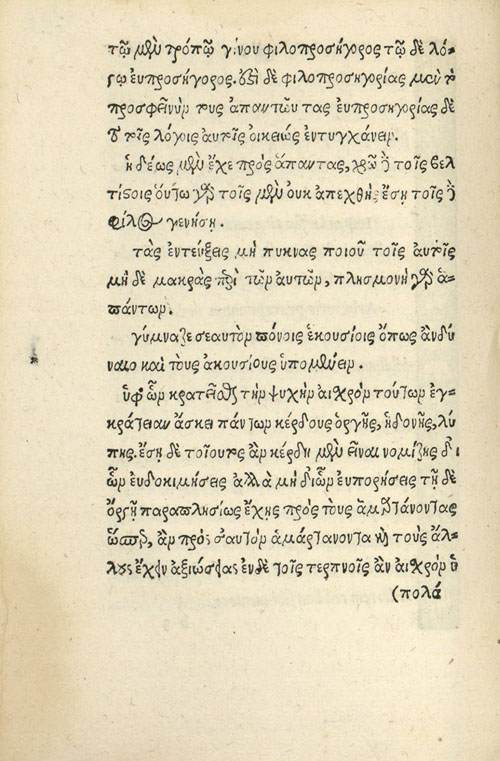 τῷ μὲν τρόπῳ γίνου φιλοπροσήγορος τῷ δὲ λό-
γῳ ἐυπροσήγορος. ἔστι δὲ φιλοπροσηγορίας μὲν τὸ
προσφωνεῖν τους ἀπαντῶν τας ἐυπροσηγορίας δὲ
τὸ τοῖς λόγοις αυτοῖς οικείως ἐντυγχάνειν.
ἡδέως μὲν ἔχε πρὸς ἅπαντας, χρῶ δὲ τοῖς βελ
τίστοις ὅυτω γὰρ τοῖς μὲν ουκ απεχθὴς ἔση τοῖς δὲ
φίλος γενήση.
τὰς ἐντεύξεις μὴ πυκνας ποιοῦ τοῖς αυτοῖς
μὴ δὲ μακρὰς περὶ τῶν αυτῶν, πλησμονὴ γὰρ ἁ-
πάντων.
γύμναζε σεαυτὸν πόνοις ἑκουσίοις ὅπως ἂν δύ
ναιο καὶ τοὺς ἀκουσίους ὑπομένειν.
ὑφ ὧν κρατεῖσθαι τὴν ψυχὴν αισχρὸν τούτων ἐγ-
κράτειαν ἄσκει πάντων κέρδους ὀργῆς, ἡδονῆς, λύ
πης. ἔση δὲ τοιουτος ἂν κέρδη μὲν εἶναι νομίζης δι
ὧν ευδοκιμήσεις αλλὰ μὴ διῶν ἐυπορήσεις τῇ δὲ
ὀργῇ παραπλησίως ἔχης πρὸς τοὺς ἁμαρτάνοντας
ὥσπερ, ἂν πρός σ'αυτὸν ἁμάρτανοντα καὶ τοὺς ἄλ-
λους ἔχειν αξιώσειας ἐν δὲ τοῖς τερπνοῖς ἂν αισχρὸν ὑ
(πολά